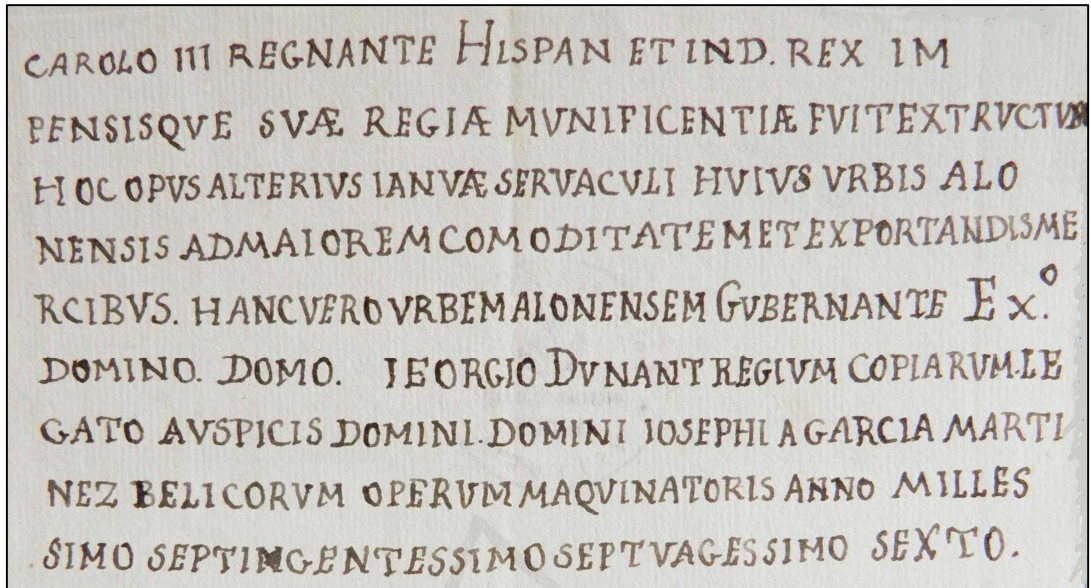 CAROLO III REGNANTE HISPAN ET IND. REX IM
PENSISQVE SVÆ REGIÆ MVNIFICENTIÆ FVIT EXTRVCTVM
HOC OPVS ALTERIVS IANVÆ SERVACVLI HVIVS VRBIS ALO
NENSIS AD MAIOREM COMODITATEM ET EXPORTANDIS ME
RCIBVS. HANC VERO VRBEM ALONENSEM GVBERNANTE Ex.º
DOMINO. DOMO. IEORGIO DVNANT REGIVM COPIARVM.LE
GATO AVSPICIS DOMINI.DOMINI IOSEPHI A GARCIA MARTI
NEZ BELICORVM OPERVM MAQVINATORIS ANNO MILLES
SIMO SEPTINGENTESSIMO SEPTVAGESSIMO SEXTO.